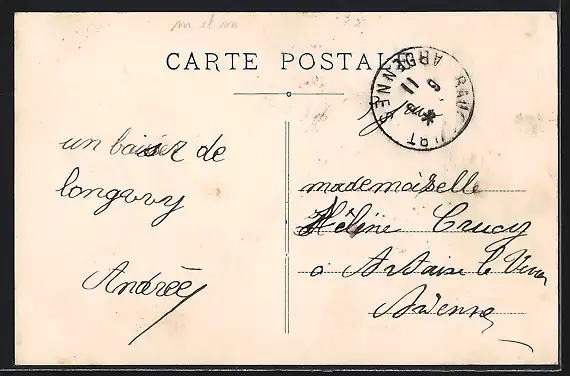 m el m
CARTE POSTALE
RAUCOURT
ARDENNES
un baiser de
longwy
Andrée
mademoiselle
Hélène Crucy
à Artaise le Vivier
Ardennes